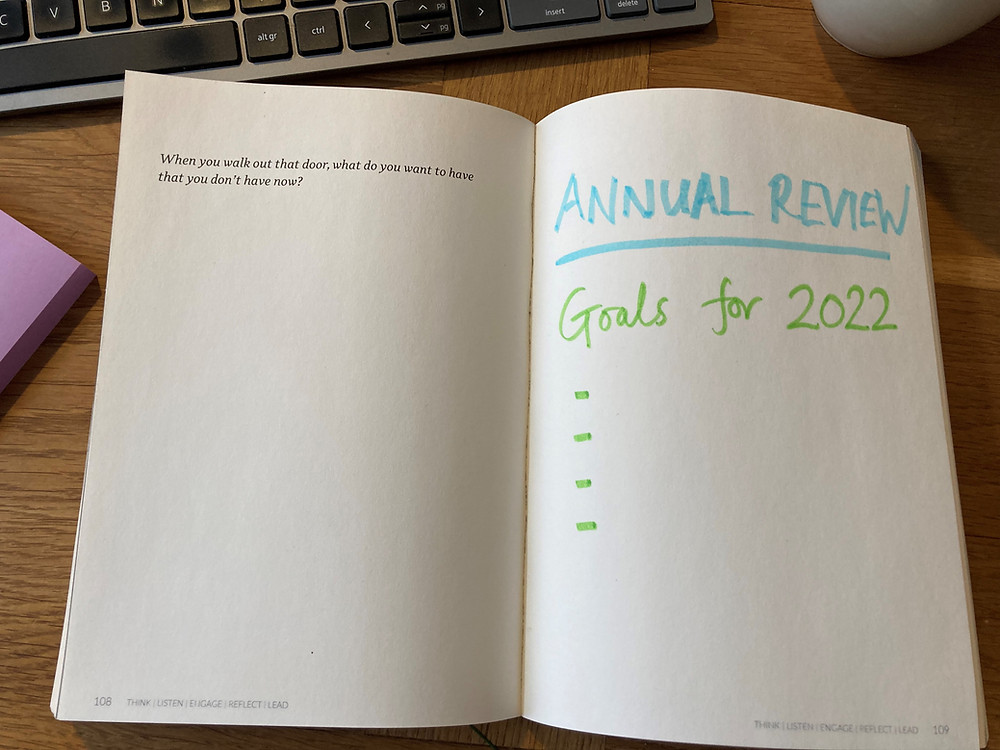 C
V
B
N
alt gr
ctrl
<
pg
pg
>
insert
delete
When you walk out that door, what do you want to have
that you don't have now?
108 THINK | LISTEN | ENGAGE | REFLECT | LEAD
ANNUAL REVIEW
Goals for 2022
-
-
-
-
THINK | LISTEN | ENGAGE | REFLECT | LEAD 109